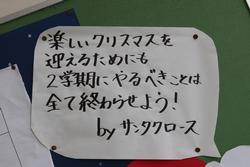 楽しいクリスマスを
迎えるためにも
2学期にやるべきことは
全て終わらせよう!
by サンタクロース